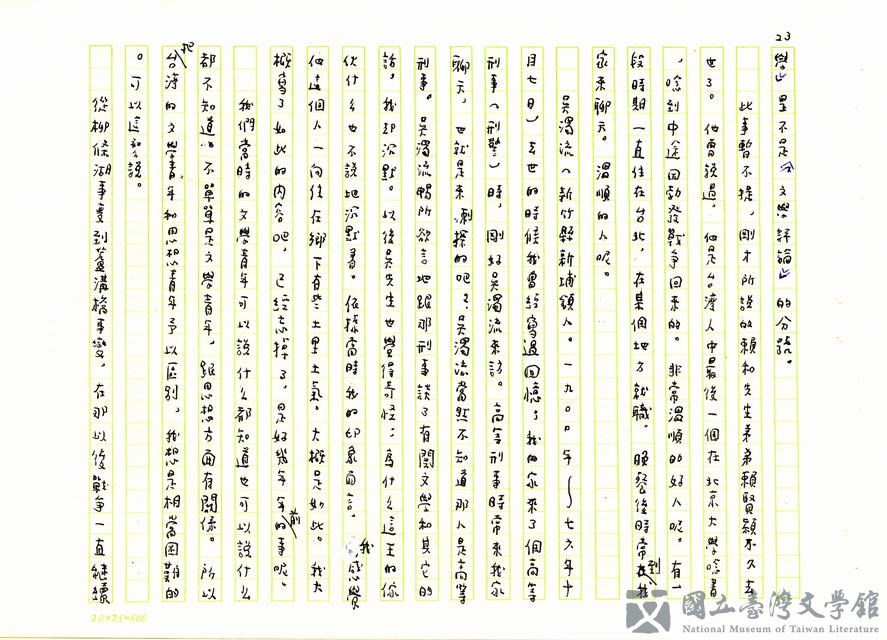 23
學』是不是《文學評論》的分號。
此事暫不提,剛才所說的賴和先生弟弟賴賢穎不久去
世了。他曾說過,他是台灣人中最後一個在北京大學唸書
,唸到中途因勃發戰爭回來的。非常溫順的好人呢。有一
段時期一直住在台北,在某個地方就職。晚餐後時常到我
家來聊天。溫順的人呢。
吳濁流(新竹縣新埔鎮人。一九〇〇年~七六年十
月七日)去世的時候我曾經寫過回憶;我的家來了個高等
刑事(刑警)時,剛好吳濁流來訪。高等刑事時常來我家
聊天,也就是來刺探的吧?吳濁流當然不知道那人是高等
刑事。吳濁流暢所欲言地跟那刑事談了有關文學和其它的
話,我却沉默。以後吳先生也覺得奇怪;為什么這王的傢
伙什么也不說地沉默着。依據當時我的印象而言。我感覺
他這個人一向住在鄉下有些土里土氣。大概是如此。我大
概寫了如此的內容吧,已經忘掉了,是好幾年前的事呢。
我們當時的文學青年可以說什么都知道也可以說什么
都不知道。不單單是文學青年,跟思想方面有關係。所以
把台灣的文學青年和思想青年予以區別,我想是相當困難的
。可以這么說。
從柳條湖事變到蘆溝橋事變,在那以後戰爭一直繼續
20×25=500
國立臺灣文學館
National Museum of Taiwan Literature